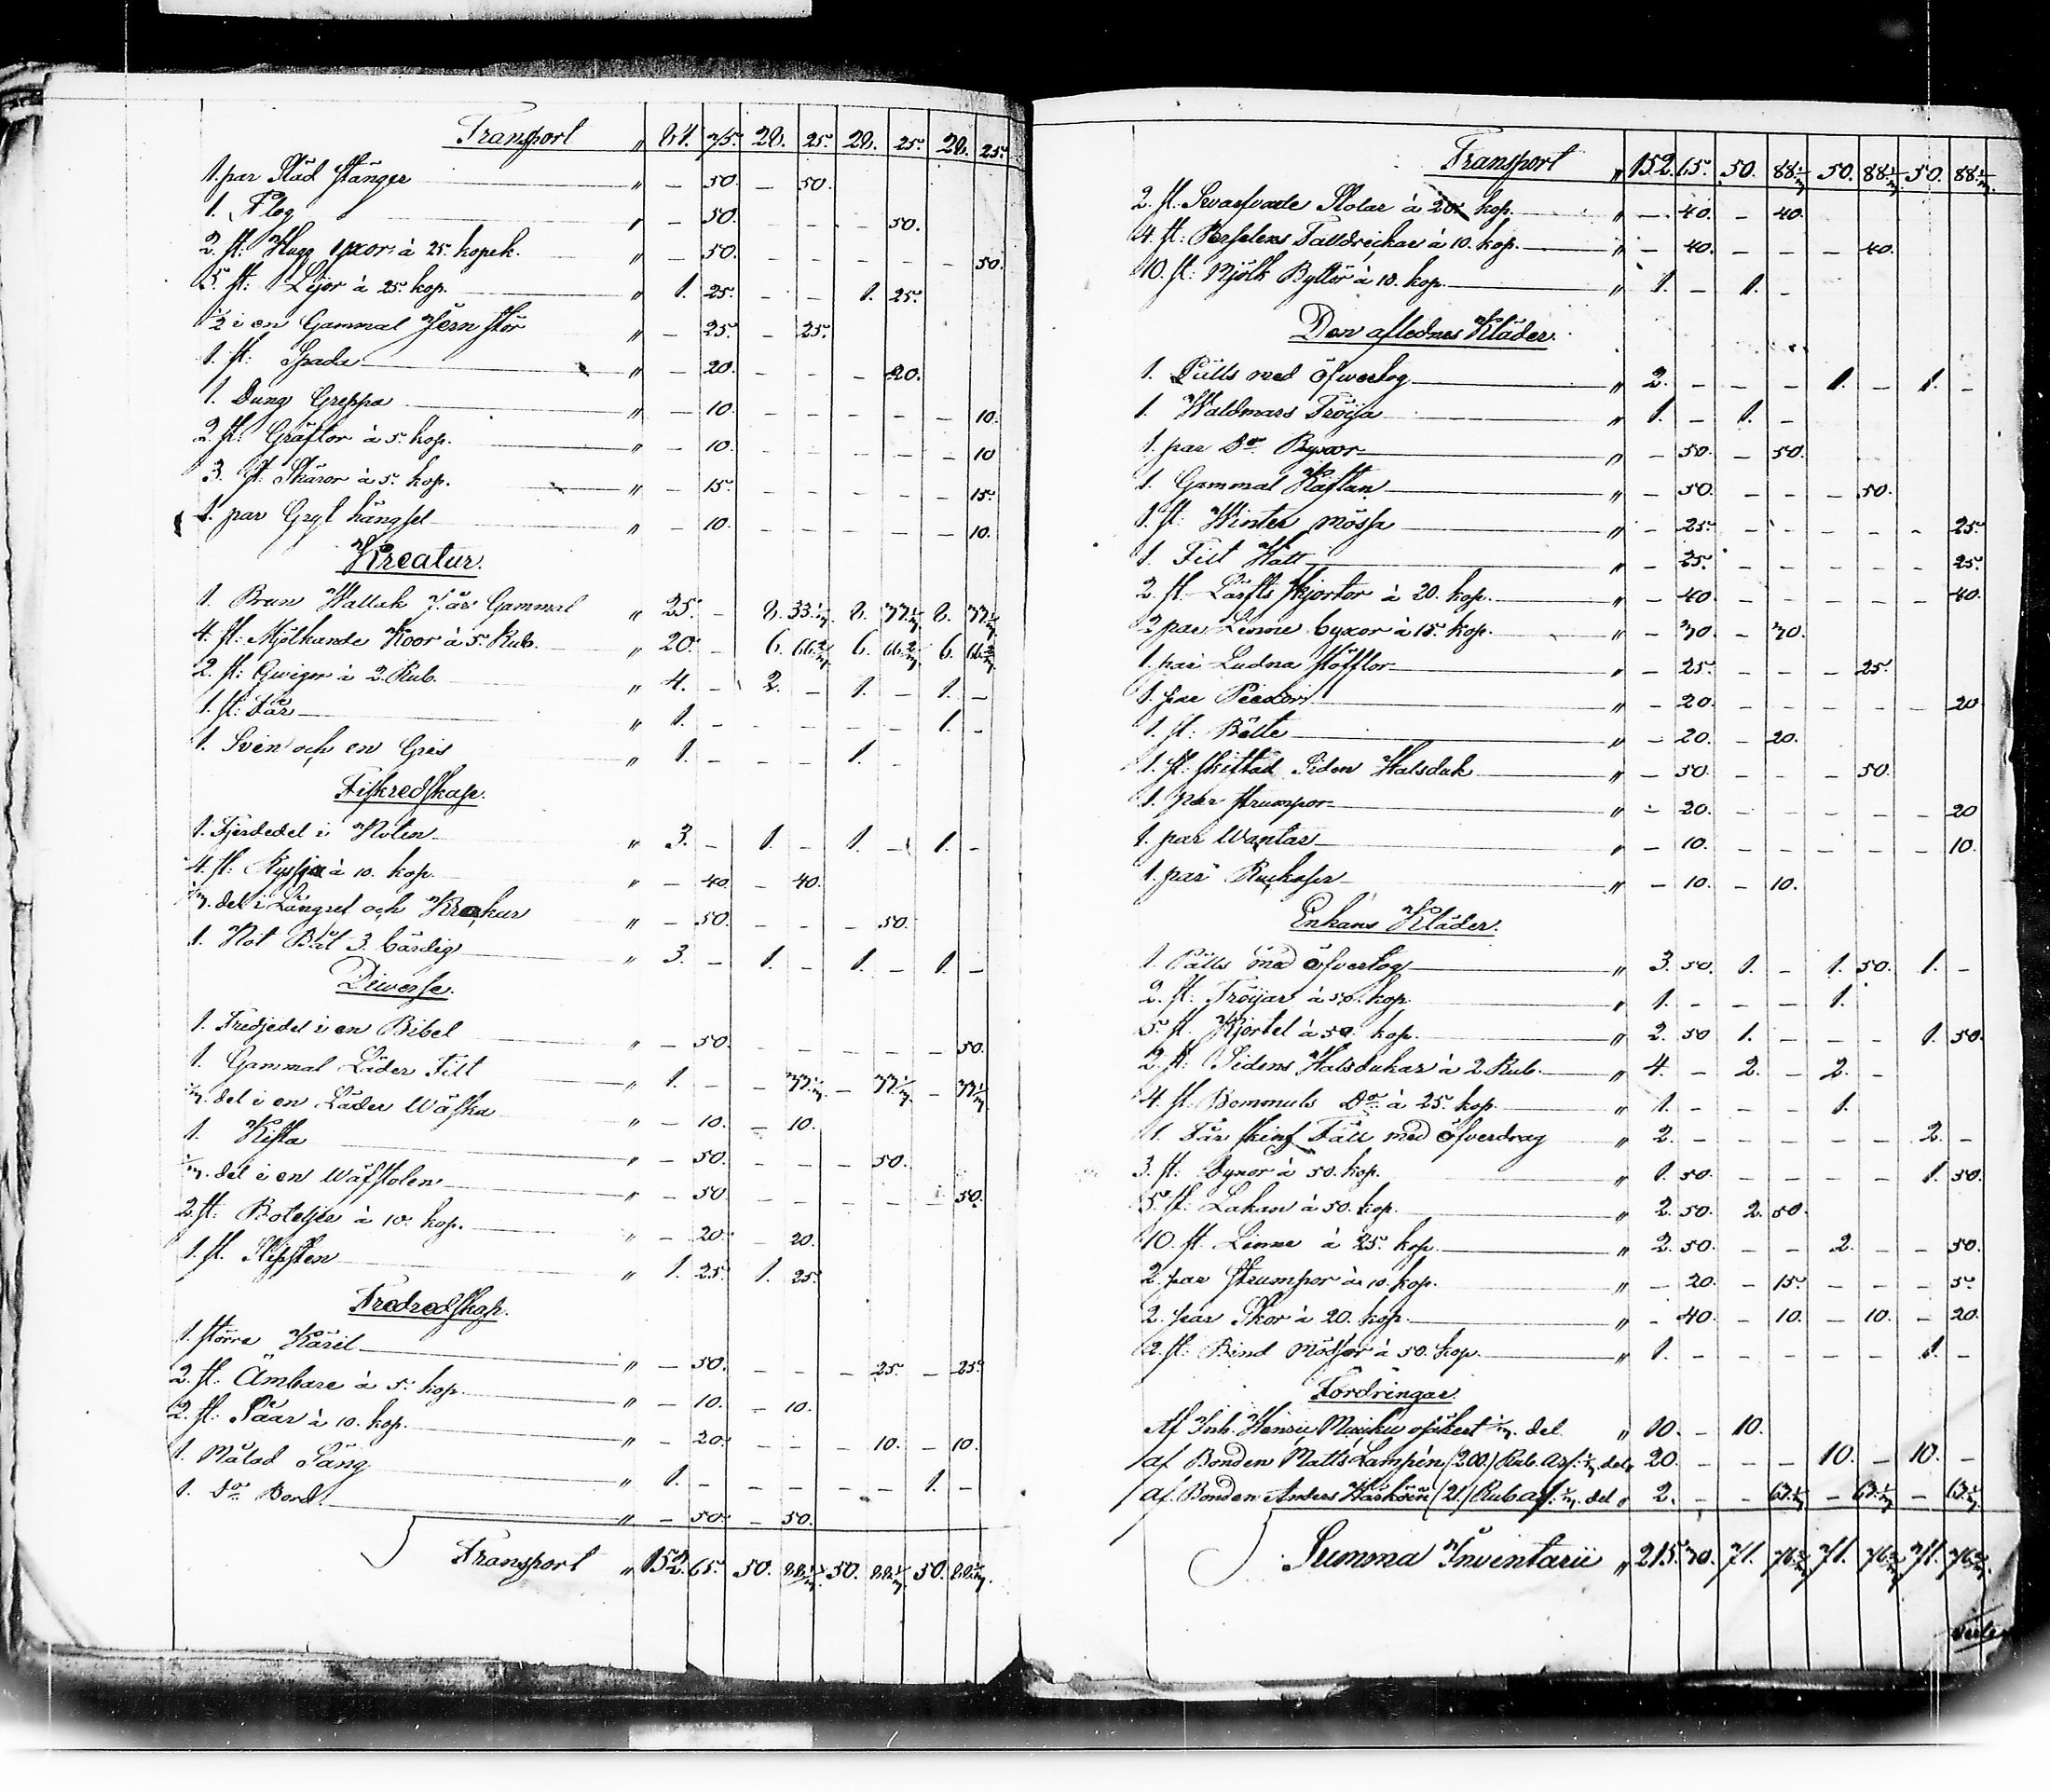 Transport " 84. 75. 28. 25. 28. 25. 28. 25.
1. par Släd stänger " – 50. – 50.
1. Plog " – 50. – – – 50.
2. st: Hugg yxor à 25. kopek. " – 50. – – – – – 50.
5. st: Lijor à 25. kop. " 1. 25. – – 1. 25.
1/2 i en Gammal Jern stör " – 25. – 25.
1. st: Spada " – 20. – – – 20.
1. Dung Greppa " – 10. – – – – – 10.
2. st: Gräftor à 5. kop. " – 10. – – – – – 10
3. st: Skäror à 5. kop. " – 15. – – – – – 15.
1. par Gryt hängsel " – 10. – – – – – 10.
Kreatur.
1. Brun Wallak 7. år Gammal " 25. – 8. 33 1/3 8. 33 1/3 8. 33 1/3
4. st: Mjölkande Koor à 5. Rub. " 20. – 6. 66 2/3 6. 66 2/3 6. 66 2/3
2. st: Qwigor à 2. Rub. " 4. – 2. – 1. – 1. –
1. st: Får " 1. – – – – – 1. –
1. Svin och en Gris " 1. – – – 1. –
Fiskredskap.
1. Fjerdedel i Noten " 3. – 1. – 1. – 1. –
4. st: Ryssjor à 10. kop. " – 40. – 40.
1/3. del i Långref och Krokar " – 50. – – – 50.
1. Not Båt 3. bördig " 3. – 1. – 1. – 1. –
Diverse.
1. Tredjedel i en Bibel " – 50. – – – – – 50.
1. Gammal Läder Filt " 1. – – 33 1/3 – 33 1/3 – 33 1/3
1/3. del i en Läder Wäska " – 10. – 10.
1. Kista " – 50. – – – 50.
1/3. del i en Wäfstolen " – 50. – – – – – 50.
2. st: Boteljer à 10. kop. " – 20. – 20.
1. st. Slipsten " 1. 25. 1. 25.
Trädredskap.
1. större Käril " – 50. – – – 25. – 25.
2. st. Ämbare à 5. kop. " – 10. – 10.
2. st: Såar à 10. kop. " – 20. – – – 10. – 10.
1. Målad Säng " 1. – – – – – 1. –
1. Do Bord " – 50. – 50.
Transport " 152. 65. 50. 88 1/3. 50. 88 1/3. 50. 88 1/3.
Transport " 152. 65. 50. 88 1/3 50. 88 1/3 50. 88 1/3.
2. st. Swarfvade Stolar à 20. kop. " – 40. – 40.
4. st: Porslens Talldrickar à 10. kop. " – 40. – – – 40.
10. st: Mjölk Byttor à 10. kop. " 1. – 1. –
Den aflednes Kläder.
1. Pälls med öfwertog " 2. – – – 1. – 1. –
1. Waldmars Tröija " 1. – 1. –
1. par Do Byxor " – 50. – 50.
1. Gammal Kaftan " – 50. – – – 50.
1. st: Winter mössa " – 25. – – – – – 25.
1. Filt Hatt " – 25. – – – – – 25.
2. st. Lärfts skjortor à 20. kop. " – 40. – – – – – 40.
2 par Linne byxor à 15. kop. " – 30. – 30.
1. par Ludna stöfflor " – 25. – – – 25.
1. par Piexor " – 20. – – – – – 20
1. st: Bälte " – 20. – 20.
1. st: skiftad Siden Halsduk " – 50. – – – 50.
1. par strumpor " – 20. – – – – – 20
1. par Wantar " – 10. – – – – – 10.
1. par " – 10. – 10.
Enkans Kläder.
1. Pälls med öfvertog " 3. 50. 1. – 1. 50. 1. –
2. st. Tröijar à 50. kop. " 1. – – – 1.
5. st. Kjortel à 50. kop. " 2. 50 1. – – – 1. 50.
2. st: Sidens Halsdukar à 2. Rub. " 4. – 2. – 2. –
4. st. Bommuls Do à 25. kop. " 1. – – – 1.
1. Får skins Fäll med öfverdrag " 2. – – – – – 2. –
3. st: Dynor à 50. kop. " 1. 50. – – – – 1. 50.
5. st: Lakan à 50. kop. " 2. 50. 2. 50.
10. st Linne à 25. kop. " 2. 50. – – 2. – – 50.
2. par strumpor à 10. kop. " – 20. – 15. – – – 5.
2. par Skor à 20. kop. " – 40. – 10. – 10. – 20.
2. st: Bind Mössor à 50. kop. " 1. – – – – – 1. –
Fordringar.
Af Inh. 1/3. del " 10. – 10.
af Bonden Matts Lampén (200.) Rub. Arf: 1/3 del " 20. – – – 10. – 10. –
af. Bonden Anders (21.) Rub arf: 1/3. del " 2. – – 63 1/3 – 63 1/3 – 63 1/3
Summa Inventarii " 215. 30. 71. 76 2/3 71. 76 2/3 71. 76 2/3.